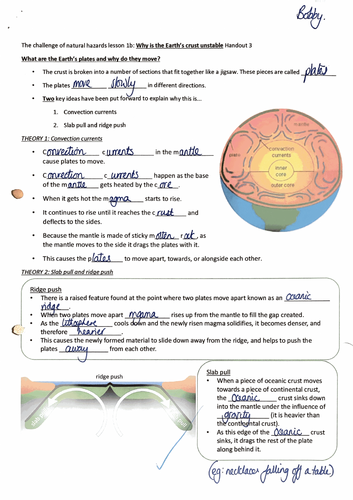 Bobby.
The challenge of natural hazards lesson 1b: Why is the Earth's crust unstable Handout 3
What are the Earth's plates and why do they move?
• The crust is broken into a number of sections that fit together like a jigsaw. These pieces are called plates
• The plates move slowly in different directions.
• Two key ideas have been put forward to explain why this is…
1. Convection currents
2. Slab pull and ridge push
THEORY 1: Convection currents
• Convection currents in the mantle
cause plates to move.
• Convection currents happen as the base
of the mantle gets heated by the core.
• When it gets hot the magma starts to rise.
• It continues to rise until it reaches the crust and
deflects to the sides.
• Because the mantle is made of sticky molten rock, as
the mantle moves to the side it drags the plates with it.
• This causes the plates to move apart, towards, or alongside each other.
mantle
plate
convection
currents
inner
core
outer core
THEORY 2: Slab pull and ridge push
Ridge push
• There is a raised feature found at the point where two plates move apart known as an oceanic
ridge.
• When two plates move apart magma rises up from the mantle to fill the gap created.
• As the lithosphere cools down and the newly risen magma solidifies, it becomes denser, and
therefore heavier.
• This causes the newly formed material to slide down away from the ridge, and helps to push the
plates away from each other.
ridge push
Slab pull
• When a piece of oceanic crust moves
towards a piece of continental crust,
the oceanic crust sinks down
into the mantle under the influence of
gravity (it is heavier than
the continental crust).
• As this edge of the oceanic crust
sinks, it drags the rest of the plate
along behind it.
(eg: necklaces falling off a table)